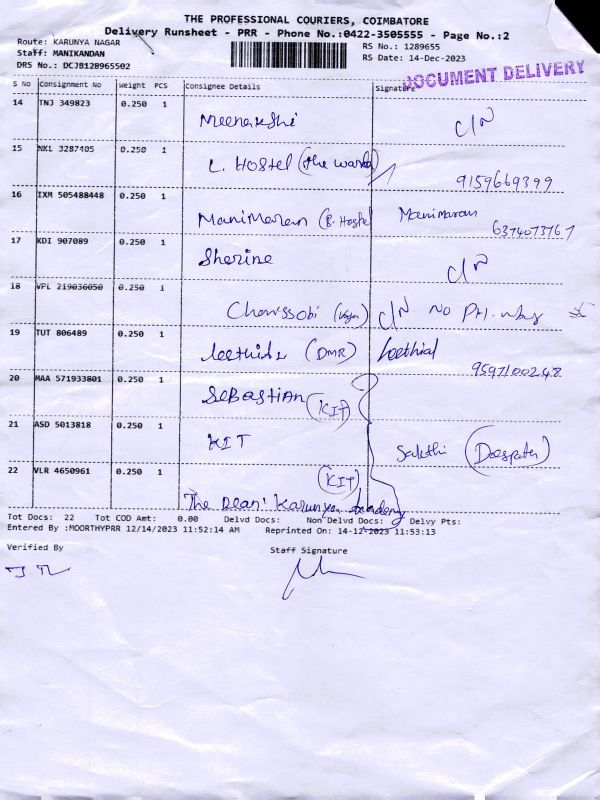 THE PROFESSIONAL COURIERS, COIMBATORE
Delivery Runsheet - PRR - Phone No.:0422-3505555 - Page No.:2
Route: KARUNYA NAGAR
RS No.: 1289655
Staff: MANIKANDAN
RS Date: 14-Dec-2023
DRS No.: DCJB128965502
DOCUMENT DELIVERY
S No Consignment No Weight PCS Consignee Details Signature
14 TNJ 349823 0.250 1 Meenakshi C/N
15 NKL 3287405 0.250 1 L. Hostel (the warden)
9159669399
16 IXM 505488448 0.250 1 Manimaran (B. Hostel Manimaran
6374073767
17 KDI 907089 0.250 1 Sherine C/N
18 VPL 219036050 0.250 1 C/N NO PH.
19 TUT 806489 0.250 1 (DMR)
9597100248
20 MAA 571933801 0.250 1 SEBASTIAN (KIT)
21 ASD 5013818 0.250 1 KIT Sakthi
22 VLR 4650961 0.250 1 (KIT)
The Dean: Karunya Academy
Tot Docs: 22 Tot COD Amt: 0.00 Delvd Docs: Non Delvd Docs: Delvy Pts:
Entered By :MOORTHYPRR 12/14/2023 11:52:14 AM Reprinted On: 14-12-2023 11:53:13
Verified By
Staff Signature